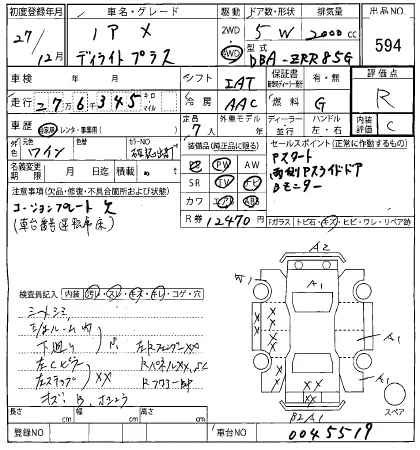 初度登録年月
27年
12月
車名・グレード
ノア X
ディライトプラス
駆動
2WD
4WD
ドア数・形状
5 W
排気量
2000 cc
型式
DBA-ZRR85G
出品NO.
594
車検 年 月
シフト
IAT
保証書
有・無
評価点
R
走行
27万6千345
キロ
マイル
冷房
AAC
燃料
G
内装
C
車歴
自家用 レンタ・事業用( )
定員
7人
外車モデル
年
ディーラー
並行
ハンドル
左・右
元色
ワイン
色替
カラーNO
装備品(純正品に限る)
PS PW AW
SR TV ナビ
カワ エアB ABS
セールスポイント(正常に作動するもの)
Pスタート
両側Pスライドドア
Bモニター
名義変更期限
月 日
積載
注意事項(欠品・修復・不具合箇所および状態)
コーションプレート欠
(車台番号運転席床)
R券
12470 円
「ガラス トビ石・キズ・ヒビ・ワレ・リペア跡」
検査員記入
内装 ヨゴレ・スレ・キズ・キレ・コゲ・穴
シートシミ
下廻り
左Cピラー
左ステップ
XX
左RフェンダーXX
RパネルXX
Rフロア
A2
A1
A1
A1
B2A1
スペア
長さ cm
幅 cm
高さ cm
登録NO
車台NO
0045519